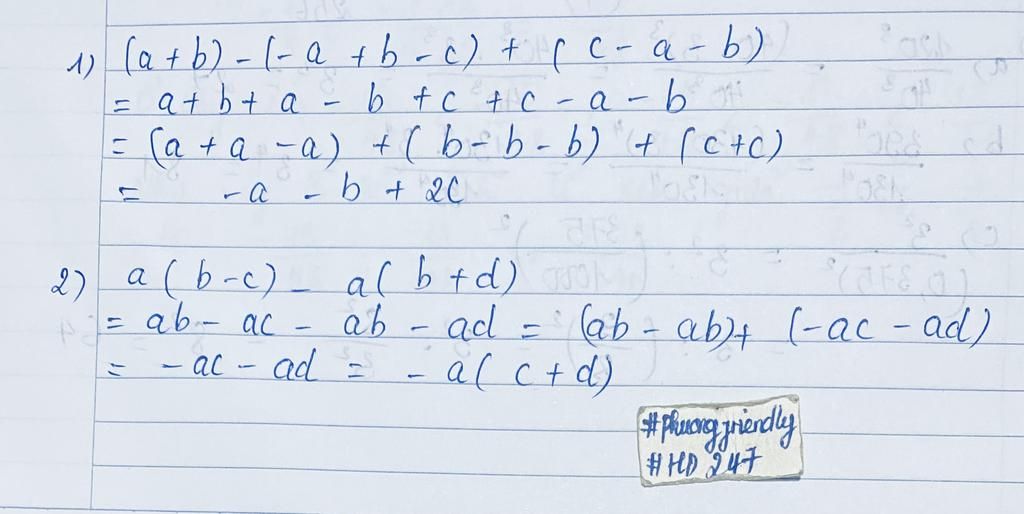 1) (a + b) - (-a + b - c) + (c - a - b)
= a + b + a - b + c + c - a - b
= (a + a - a) + (b - b - b) + (c + c)
= -a - b + 2c
2) a(b - c) - a(b + d)
= ab - ac - ab - ad = (ab - ab) + (-ac - ad)
= -ac - ad = -a(c + d)
#phuongfriendly
#HD 247